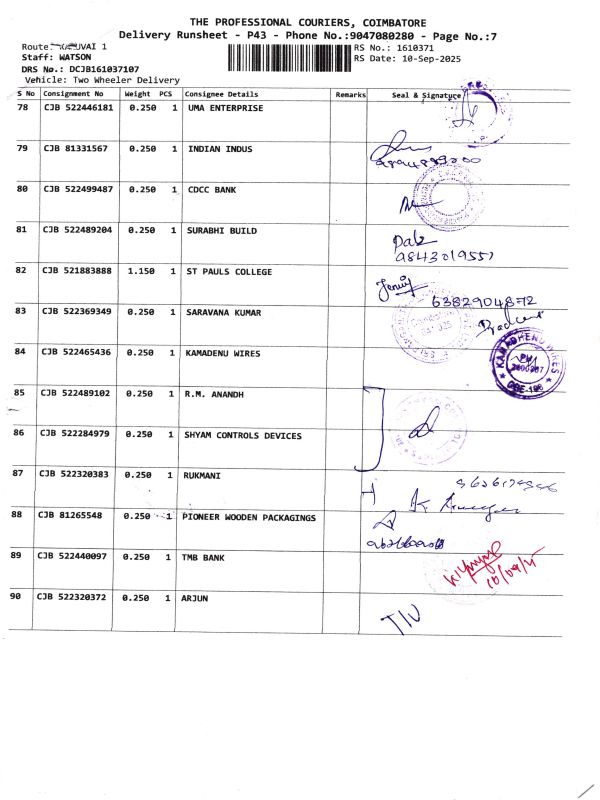 THE PROFESSIONAL COURIERS, COIMBATORE
Delivery Runsheet - P43 - Phone No.:9047080280 - Page No.:7
Route: 1
RS No.: 1610371
Staff: WATSON
RS Date: 10-Sep-2025
DRS No.: DCJB161037107
Vehicle: Two Wheeler Delivery
S No Consignment No Weight PCS Consignee Details Remarks Seal & Signature
78 CJB 522446181 0.250 1 UMA ENTERPRISE
79 CJB 81331567 0.250 1 INDIAN INDUS
80 CJB 522499487 0.250 1 CDCC BANK
81 CJB 522489204 0.250 1 SURABHI BUILD
9843019551
82 CJB 521883888 1.150 1 ST PAULS COLLEGE
6382904872
83 CJB 522369349 0.250 1 SARAVANA KUMAR
84 CJB 522465436 0.250 1 KAMADENU WIRES
KAMADHENU WIRES
85 CJB 522489102 0.250 1 R.M. ANANDH
86 CJB 522284979 0.250 1 SHYAM CONTROLS DEVICES
87 CJB 522320383 0.250 1 RUKMANI
88 CJB 81265548 1 PIONEER WOODEN PACKAGINGS
89 CJB 522440097 0.250 1 TMB BANK
10/09/25
90 CJB 522320372 0.250 1 ARJUN